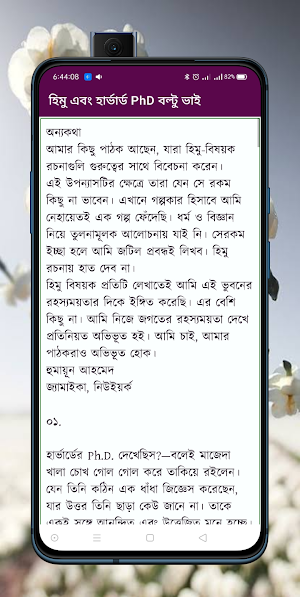 6:44:08
82%
হিমু এবং হার্ভার্ড PhD বল্টু ভাই
অন্যকথা
আমার কিছু পাঠক আছেন, যারা হিমু-বিষয়ক
রচনাগুলি গুরুত্বের সাথে বিবেচনা করেন।
এই উপন্যাসটির ক্ষেত্রে তারা যেন সে রকম
কিছু না ভাবেন। এখানে গল্পকার হিসাবে আমি
নেহায়েতই এক গল্প ফেঁদেছি। ধর্ম ও বিজ্ঞান
নিয়ে তুলনামূলক আলোচনায় যাই নি। সেরকম
ইচ্ছা হলে আমি জটিল প্রবন্ধই লিখব। হিমু
রচনায় হাত দেব না।
হিমু বিষয়ক প্রতিটি লেখাতেই আমি এই ভুবনের
রহস্যময়তার দিকে ইঙ্গিত করেছি। এর বেশি
কিছু না। আমি নিজে জগতের রহস্যময়তা দেখে
প্রতিনিয়ত অভিভূত হই। আমি চাই, আমার
পাঠকরাও অভিভূত হোক।
হুমায়ূন আহমেদ
জ্যামাইকা, নিউইয়র্ক
০১.
হার্ভার্ডের Ph.D. দেখেছিস?—বলেই মাজেদা
খালা চোখ গোল গোল করে তাকিয়ে রইলেন।
যেন তিনি কঠিন এক ধাঁধা জিজ্ঞেস করেছেন,
যার উত্তর তিনি ছাড়া কেউ জানে না। তাকে
একই সঙ্গে আনন্দিত এবং উত্তেজিত মনে হচ্ছে।